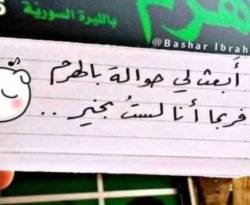 بالليرة السورية
@Bashar Ibrah
أبعث لي حوالة بالهرم
فربما أنا لستُ بخير ..